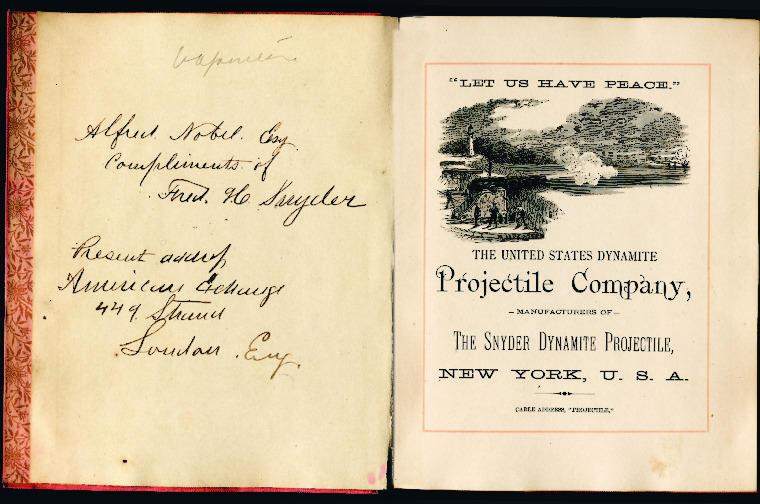 Alfred Nobel. Esq
Compliments of
Fred. H Snyder
Present address
American Exchange
449 Strand
London. Eng.
"LET US HAVE PEACE."
THE UNITED STATES DYNAMITE
Projectile Company,
— MANUFACTURERS OF —
THE SNYDER DYNAMITE PROJECTILE,
NEW YORK, U. S. A.
CABLE ADDRESS, "PROJECTILE,"